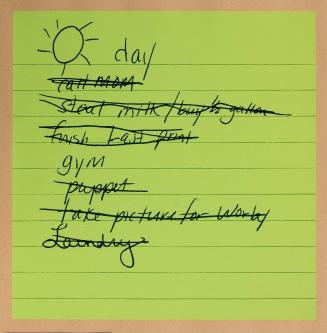 day
call mom
steal milk / buy ½ gallon
finish t-shirt print
gym
puppet
take picture for Worby
Laundry